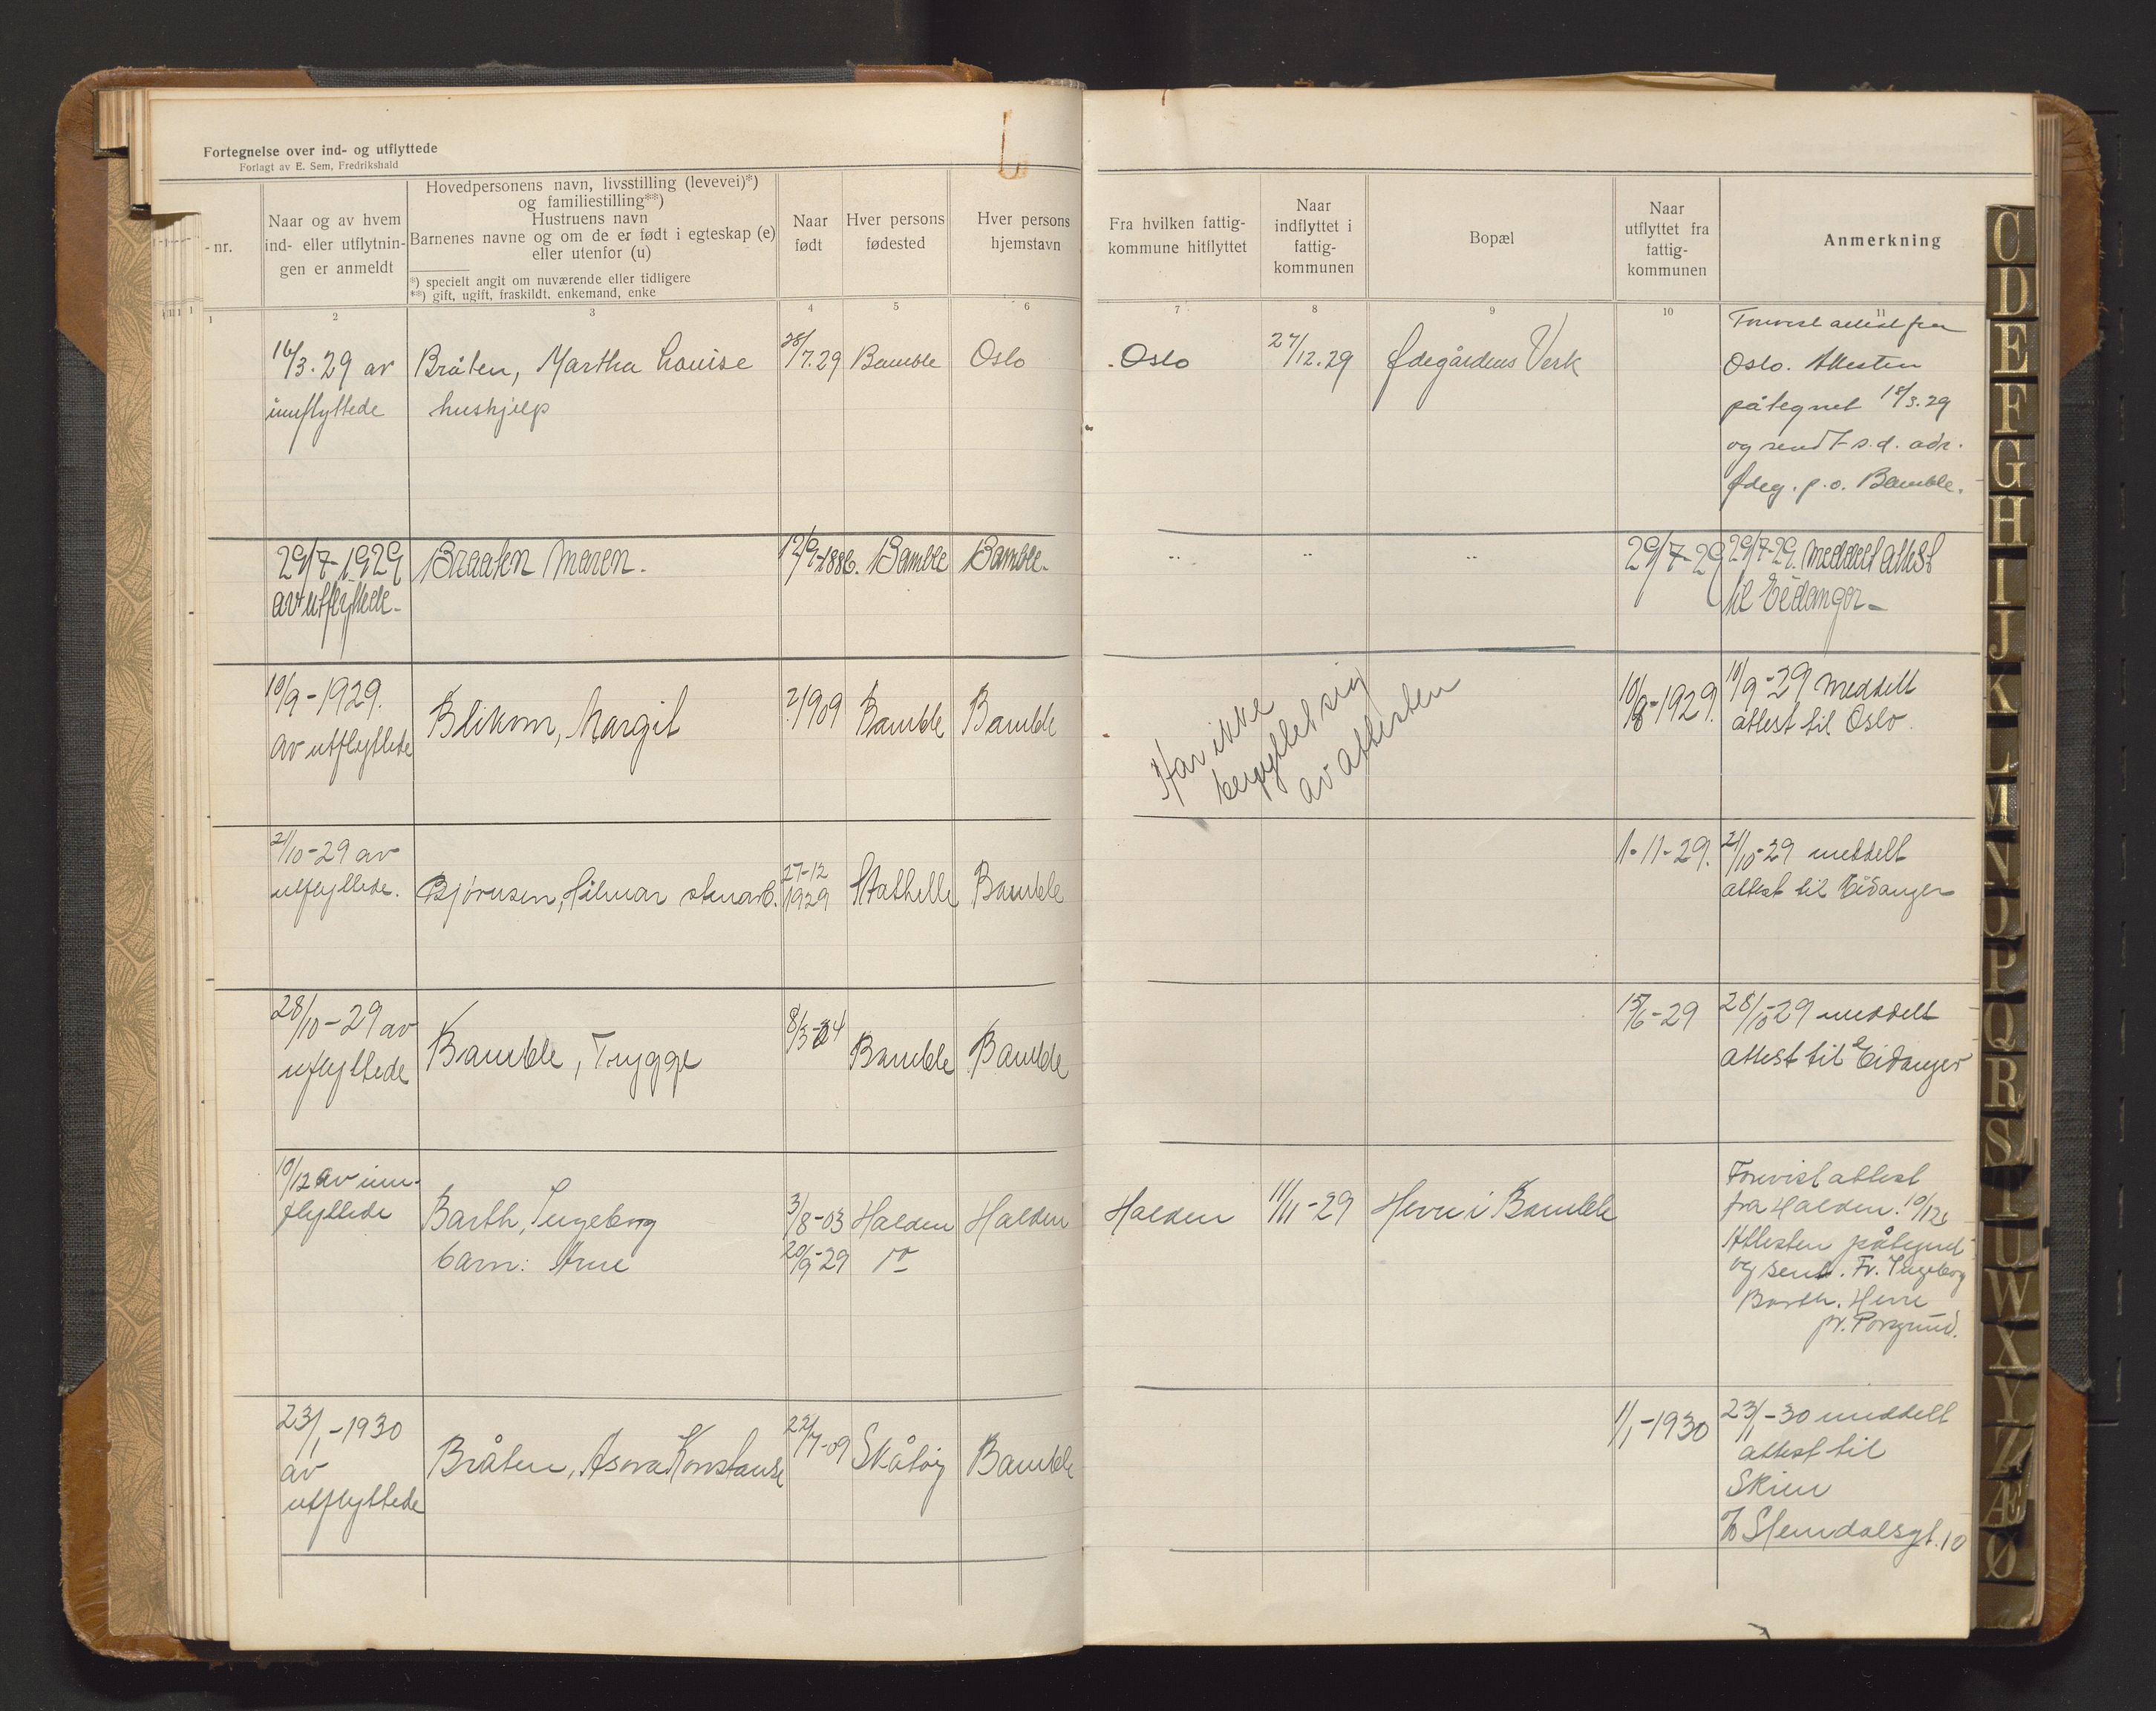 Fortegnelse over ind- og utflyttede
Forlagt av E. Sem, Fredrikshald
- nr.
Naar og av hvem
ind- eller utflytnin-
gen er anmeldt
Hovedpersonens navn, livsstilling (levevei)*)
og familiestilling**)
Hustruens navn
Barnenes navne og om de er født i egteskap (e)
eller utenfor (u)
*) specielt angit om nuværende eller tidligere
**) gift, ugift, fraskildt, enkemand, enke
Naar
født
Hver persons
fødested
Hver persons
hjemstavn
Fra hvilken fattig-
kommune hitflyttet
Naar
indflyttet i
fattig-
kommunen
Bopæl
Naar
utflyttet fra
fattig-
kommunen
Anmerkning
1 2 3 4 5 6 7 8 9 10 11
16/3.29 av
innflyttede
Bråten, Martha Louise
hushjelp
28/7.29
Bamble
Oslo
Oslo
27/12.29
Ødegårdens Verk
Forevist attest fra
Oslo. Attesten
påtegnet 18/3.29
og sendt s.d. adr.
Ødeg. p.o. Bamble.
29/7-1929
av utflyttede.
Braaten Maren.
12/9-1886.
Bamble
Bamble.
"
"
"
29/7-29
29/7-29. meddelt attest
til Eidanger
10/9-1929.
av utflyttede
Blikom, Margit
2/1909
Bamble
Bamble
Har ikke
benyttet sig
av attesten
10/8-1929.
10/9-29 meddelt
attest til Oslo.
21/10-29 av
utflyttede.
Bjørnsen, Hilmar stenarb.
27-12
1929
Stathelle
Bamble
1-11-29.
21/10-29 meddelt
attest til Eidanger
28/10-29 av
utflyttede
Bamble, Trygge
8/3-04
Bamble
Bamble
15/6-29
28/10-29 meddelt
attest til Eidanger
10/12 av inn-
flyttede
Barth, Ingeborg
barn: Arne
3/8-03
20/9-29
Halden
do
Halden
Halden
11/11-29
Herre i Bamble
Forevist attest
fra Halden. 10/12
Attesten påtegnet
og sent. Fr. Ingeborg
Barth. Herre
pr. Porsgrund.
23/1-1930
av
utflyttede
Bråten, Asora Konstanse
22/7-09
Skåtøy
Bamble
1/1-1930
23/1-30 meddelt
attest til
Skien
Stendalsgt. 10
C
D
E
F
G
H
I
J
K
L
M
N
O
P
Q
R
S
T
U
W
X
Y
Z
Æ
Ø